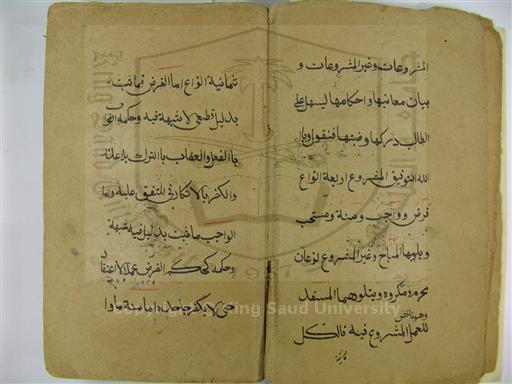 المشروعات وغير المشروعات و
بيان معانيها واحكامها ليسهل على
الطالب دركها وضبطها فنقول وبا
الله التوفيق المشروع اربعة انواع
فرض وواجب وسنة ومستحب
ويليها المباح وغير المشروع نوعان
محرم ومكروه ويتلوهما المفسد
للعمل المشروع فيه فالكل
ثمانية انواع اما الفرض فما ثبت
بدليل قطعي لا شبهة فيه وحكمه الثواب
بالفعل والعقاب بالترك بلا عذر
والكفر بالانكار في المتفق عليه واما
الواجب ما ثبت بدليل فيه شبهة
وحكمه كحكم الفرض عملا لا اعتقادا
حتى لا يكفر جاحده
King Saud University